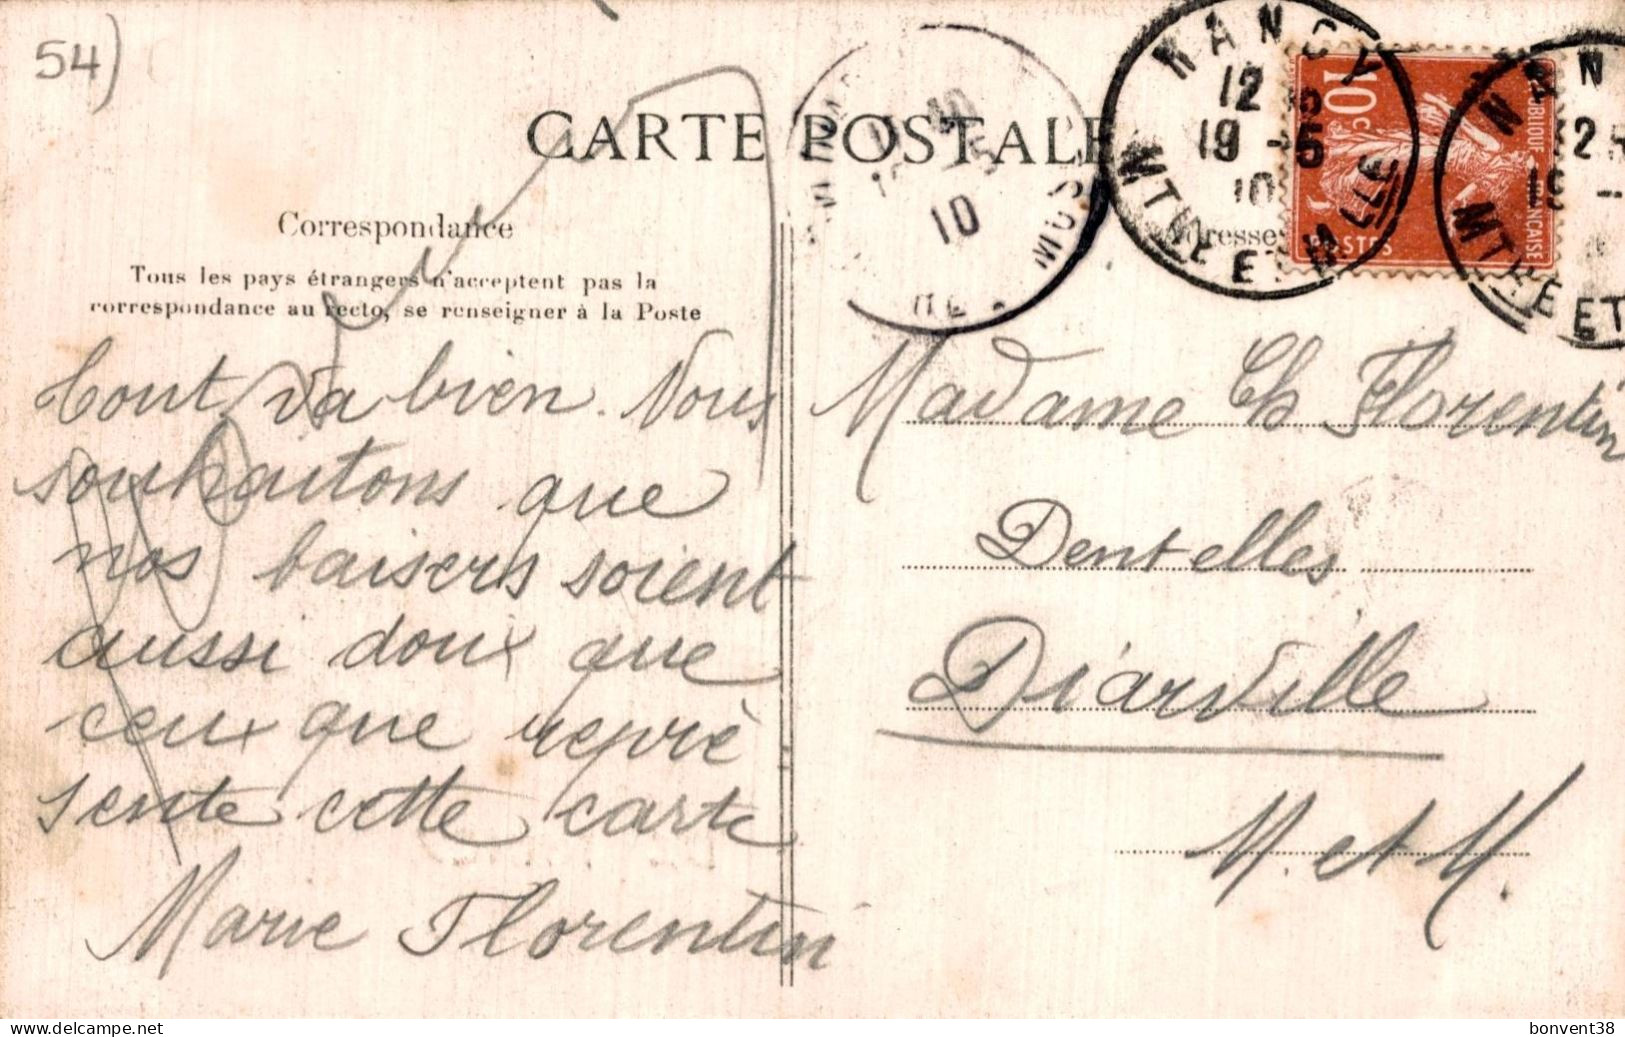 54)
CARTE POSTALE
Correspondance
Tous les pays étrangers n'acceptent pas la
correspondance au recto, se renseigner à la Poste
Tout va bien. Nous
souhaitons que
nos baisers soient
aussi doux que
ceux que repré
sente cette carte
Marie Florentin
10
NANCY
12
19 -5
10
MTHE ET MLLE
Adresse
10c
POSTES
NAN
MTHE ET
Madame Ch Florentin
Dentelles
Diarville
M. et M.
www.delcampe.net
bonvent38